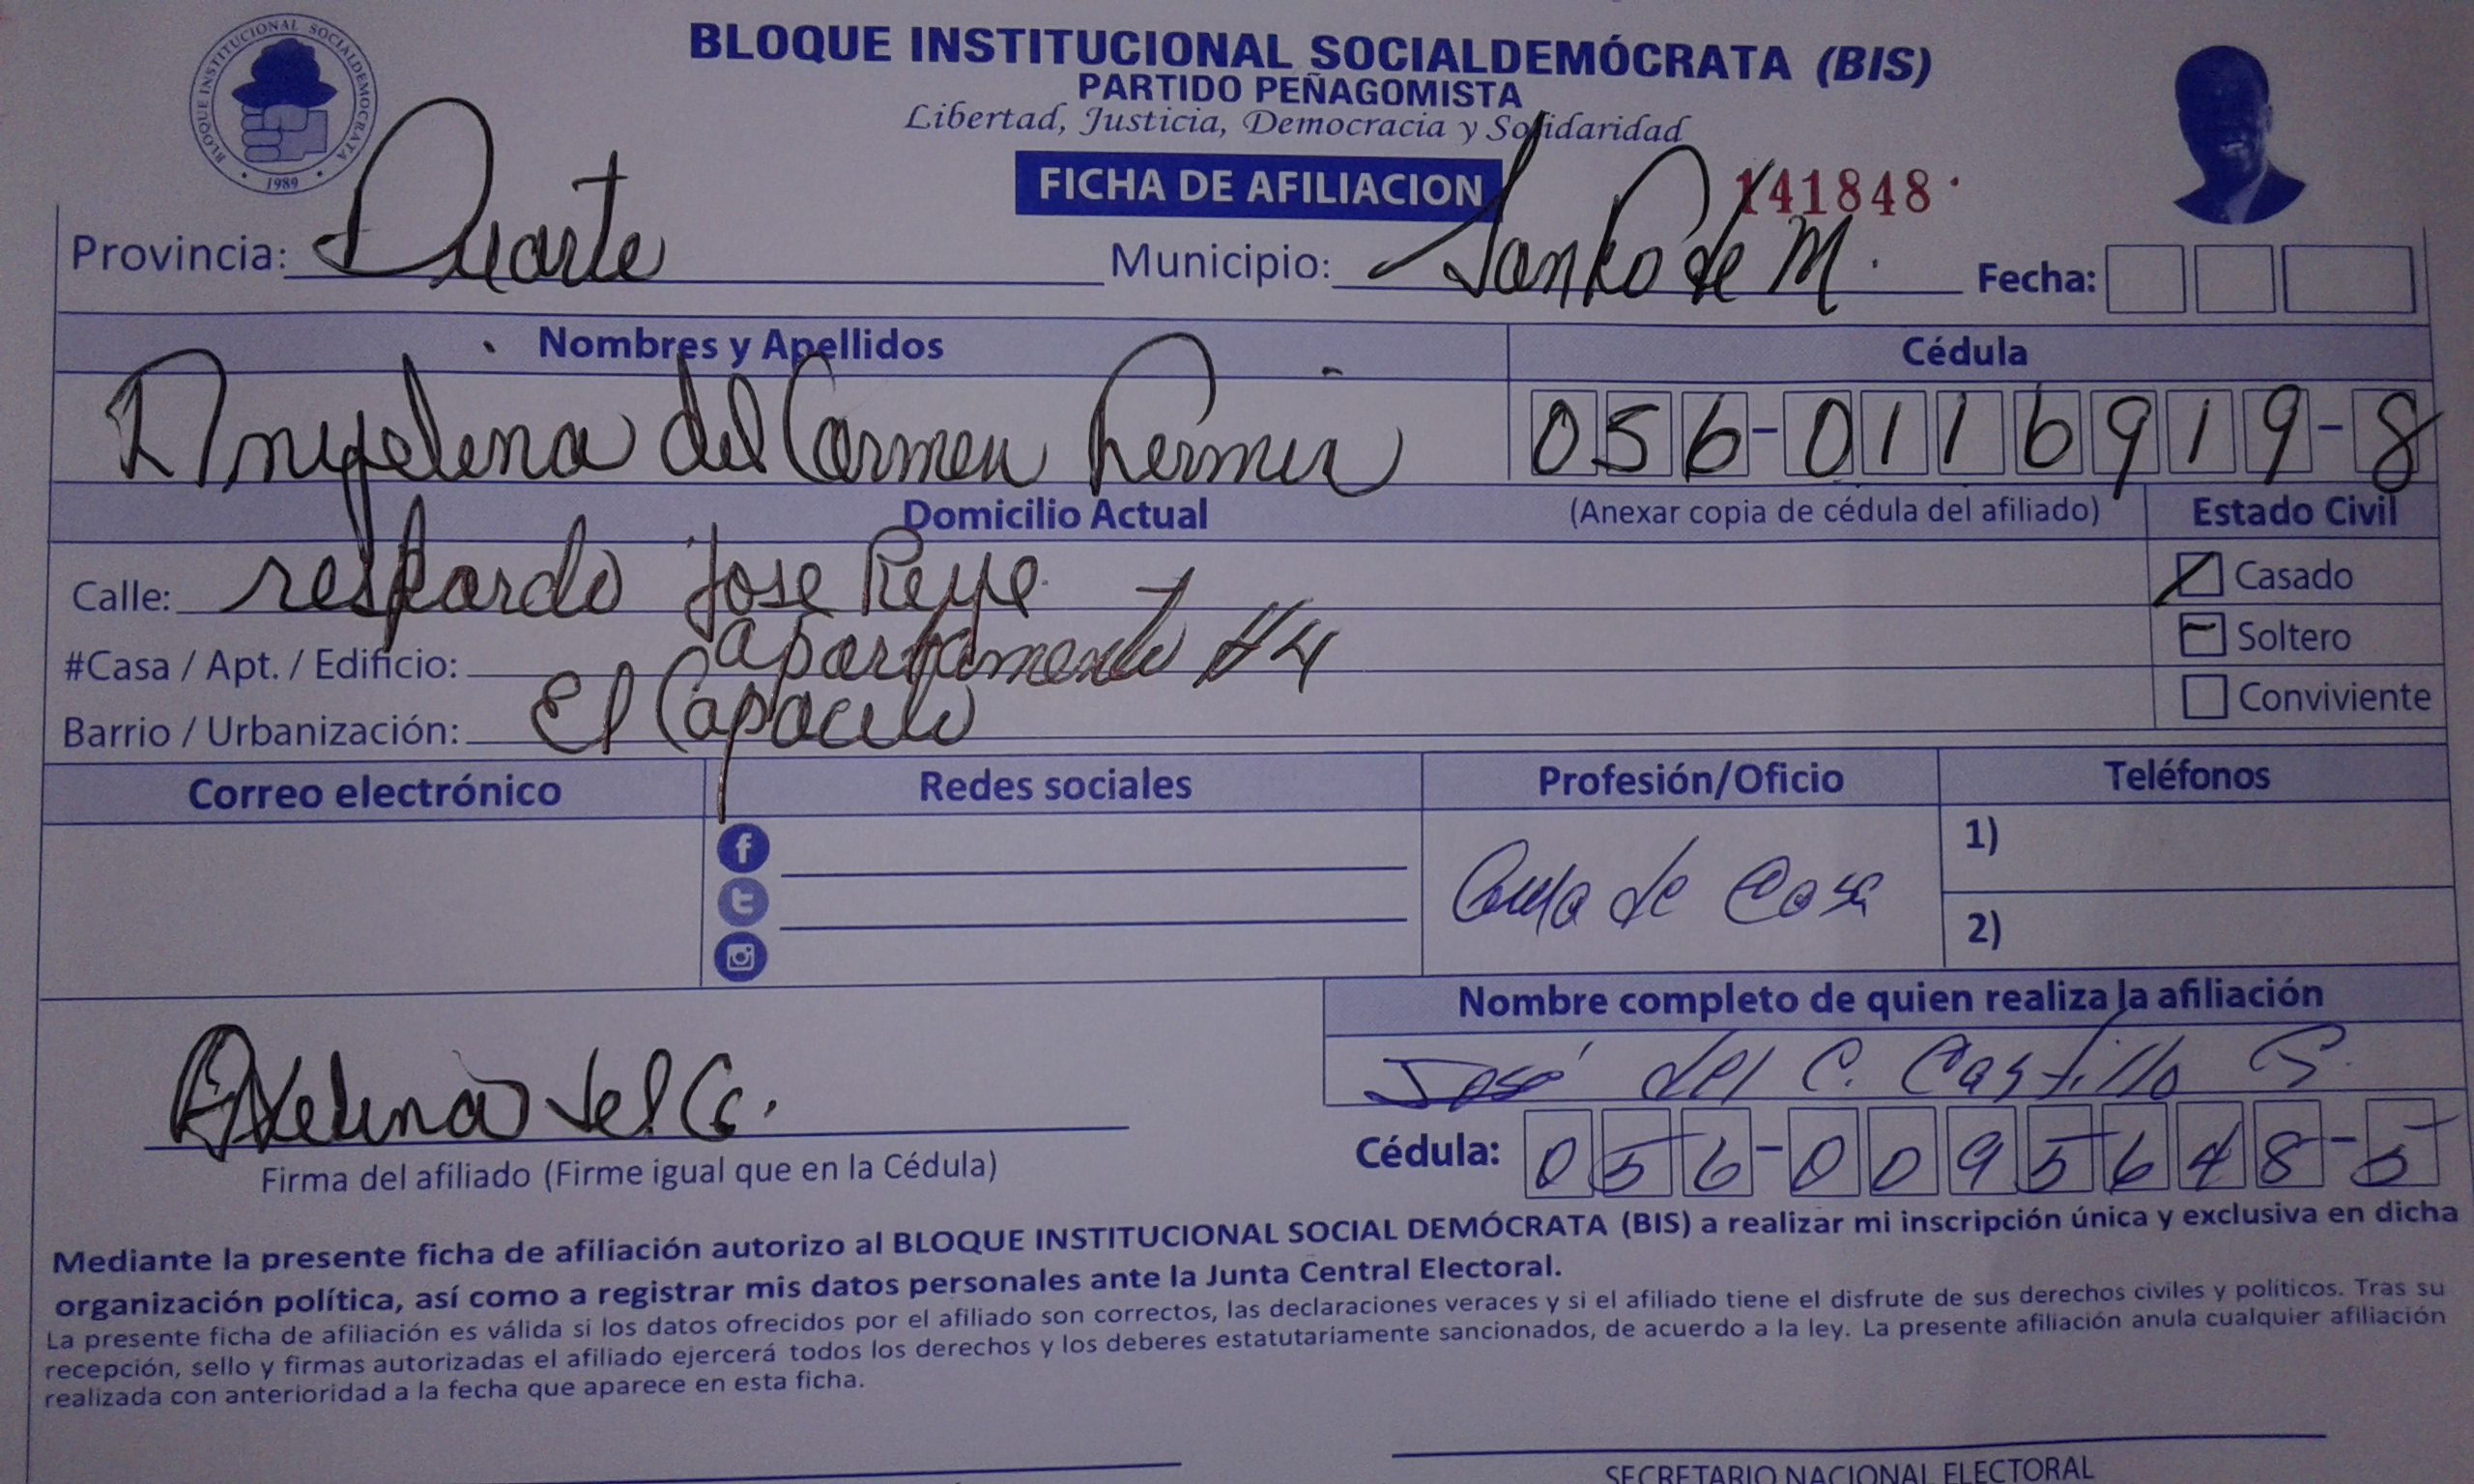 BLOQUE INSTITUCIONAL SOCIALDEMÓCRATA (BIS)
PARTIDO PEÑAGOMISTA
Libertad, Justicia, Democracia y Solidaridad
BLOQUE INSTITUCIONAL SOCIALDEMOCRATA
1989
FICHA DE AFILIACION
141848
Provincia: Duarte Municipio: San Fco de M. Fecha:
Nombres y Apellidos Cédula
Angelina del Carmen 056-0116919-8
Domicilio Actual (Anexar copia de cédula del afiliado) Estado Civil
Calle: respardo Jose Reye Casado
#Casa / Apt. / Edificio: apartamento #4 Soltero
Barrio / Urbanización: El Capacito Conviviente
Correo electrónico Redes sociales Profesión/Oficio Teléfonos
de Casa
1)
2)
Nombre completo de quien realiza la afiliación
José del C. Castillo
del C.
Cédula: 056-0095648-5
Firma del afiliado (Firme igual que en la Cédula)
Mediante la presente ficha de afiliación autorizo al BLOQUE INSTITUCIONAL SOCIAL DEMÓCRATA (BIS) a realizar mi inscripción única y exclusiva en dicha
organización política, así como a registrar mis datos personales ante la Junta Central Electoral.
La presente ficha de afiliación es válida si los datos ofrecidos por el afiliado son correctos, las declaraciones veraces y si el afiliado tiene el disfrute de sus derechos civiles y políticos. Tras su
recepción, sello y firmas autorizadas el afiliado ejercerá todos los derechos y los deberes estatutariamente sancionados, de acuerdo a la ley. La presente afiliación anula cualquier afiliación
realizada con anterioridad a la fecha que aparece en esta ficha.
SECRETARIO NACIONAL ELECTORAL